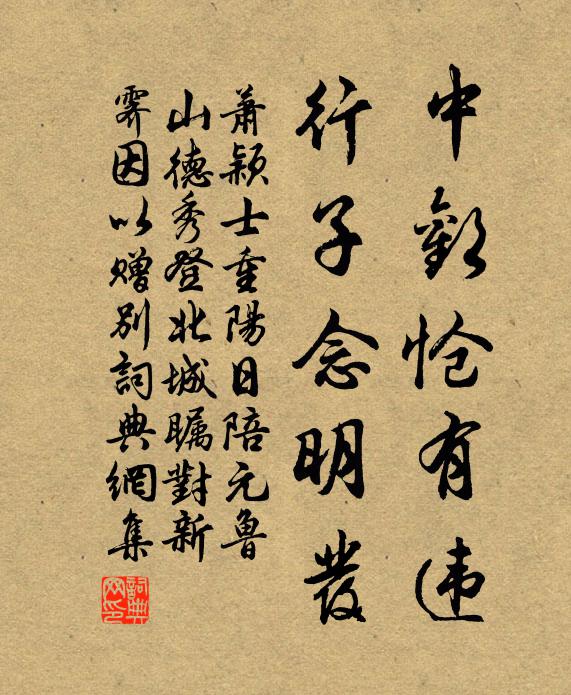 中歡怆有违
行子念明發
蕭颍士重陽日陪元魯
山德秀登北城瞩對新
霽因以赠别詞典網集
詞典
网印